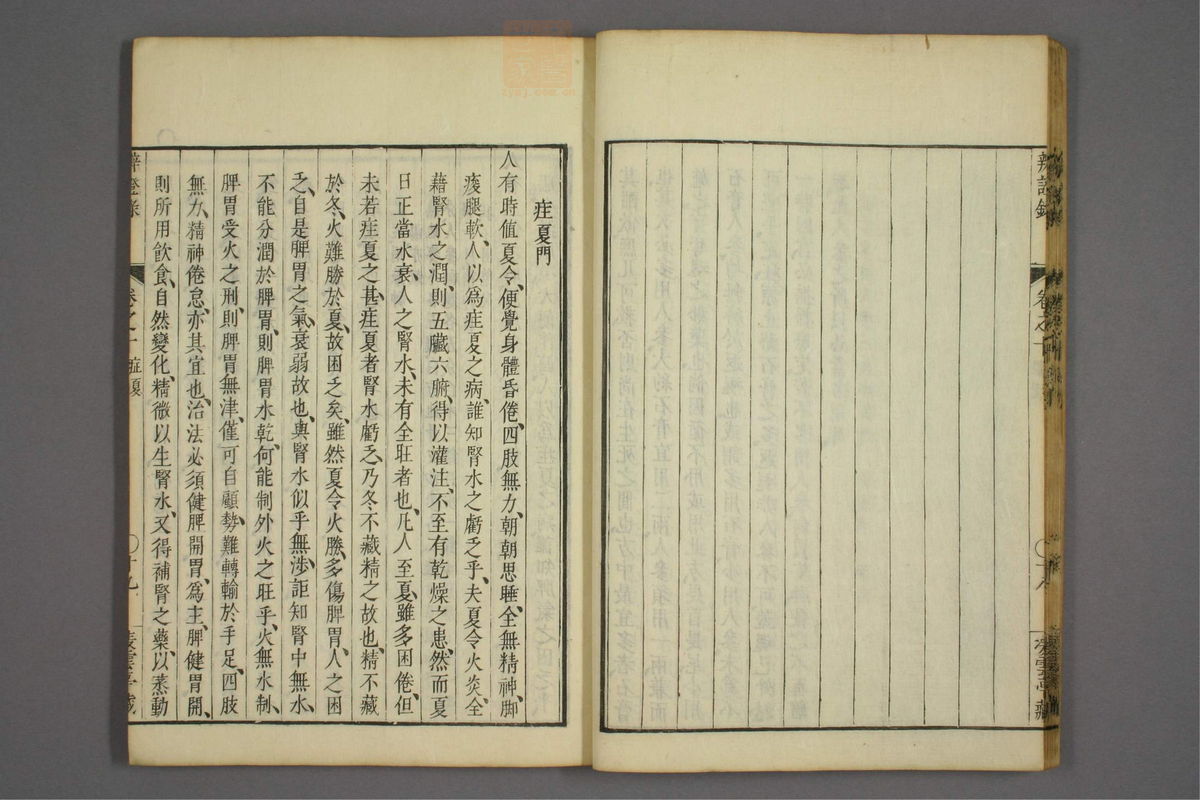 辨證錄
卷之
十八
凌雲亭藏
疰夏門
人有時值夏令、便覺身體昏倦、四肢無力、朝朝思睡、全無精神、脚
痠腿軟、人以爲疰夏之病、誰知腎水之虧乏乎、夫夏令火炎、全
藉腎水之潤、則五臟六腑、得以灌注、不至有乾燥之患、然而夏
日正當水衰、人之腎水、未有全旺者也、凡人至夏、雖多困倦、但
未若疰夏之甚、疰夏者腎水虧乏、乃冬不藏精之故也、精不藏
於冬、火難勝於夏、故困乏矣、雖然夏令火勝、多傷脾胃、人之困
乏、自是脾胃之氣、衰弱故也、與腎水似乎無涉、詎知腎中無水、
不能分潤於脾胃、則脾胃水乾、何能制外火之旺乎、火無水制、
脾胃受火之刑、則脾胃無津、僅可自顧、勢難轉輸於手足、四肢
無力、精神倦怠、亦其宜也、治法必須健脾開胃、爲主、脾健胃開、
則所用飲食、自然變化、精微以生腎水、又得補腎之藥、以蒸動
辨證錄
卷之十
疰夏
十九
凌雲亭藏